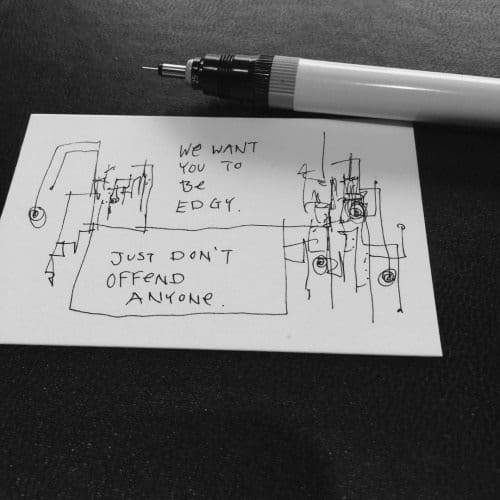 WE WANT
YOU TO
Be
EDGY.
JUST DON'T
OFFeND
ANYONE.